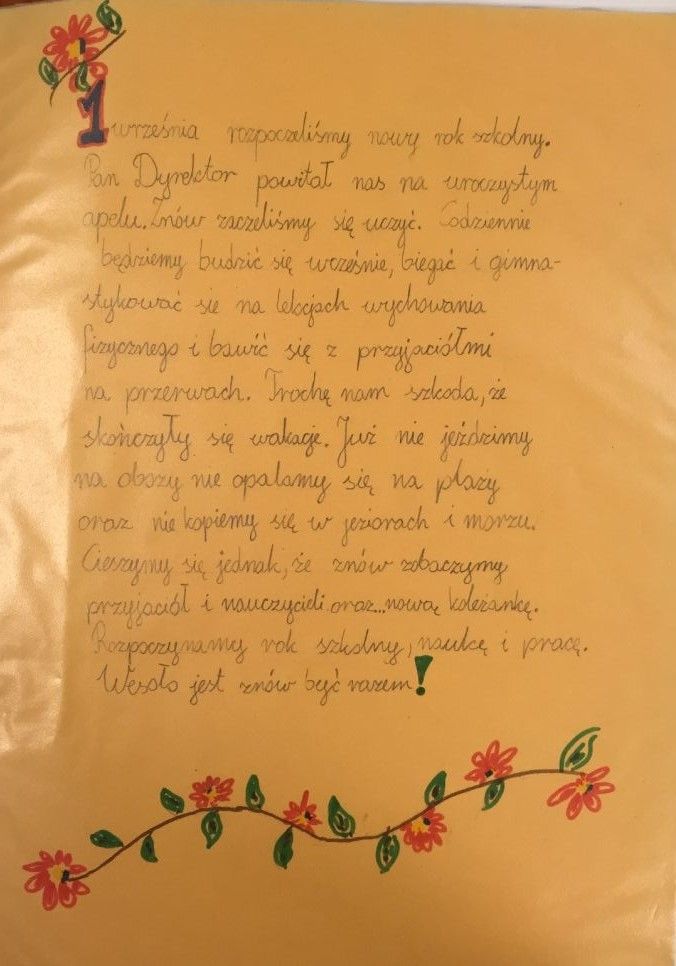 1 września rozpoczeliśmy nowy rok szkolny.
Pan Dyrektor powitał nas na uroczystym
apelu. Znów zaczeliśmy się uczyć. Codziennie
będziemy budzić się wcześnie, biegać i gimna-
stykować sie na lekcjach wychowania
fizycznego i bawić się z przyjaciółmi
na przerwach. Trochę nam szkoda, że
skończyły się wakacje. Już nie jeździmy
na obozy nie opalamy się na plaży
oraz nie kopiemy się w jeziorach i morzu.
Cieszymy się jednak, że znów zobaczymy
przyjaciół i nauczycieli oraz...nową koleżankę.
Rozpoczynamy rok szkolny, naukę i pracę.
Wesoło jest znów być razem!